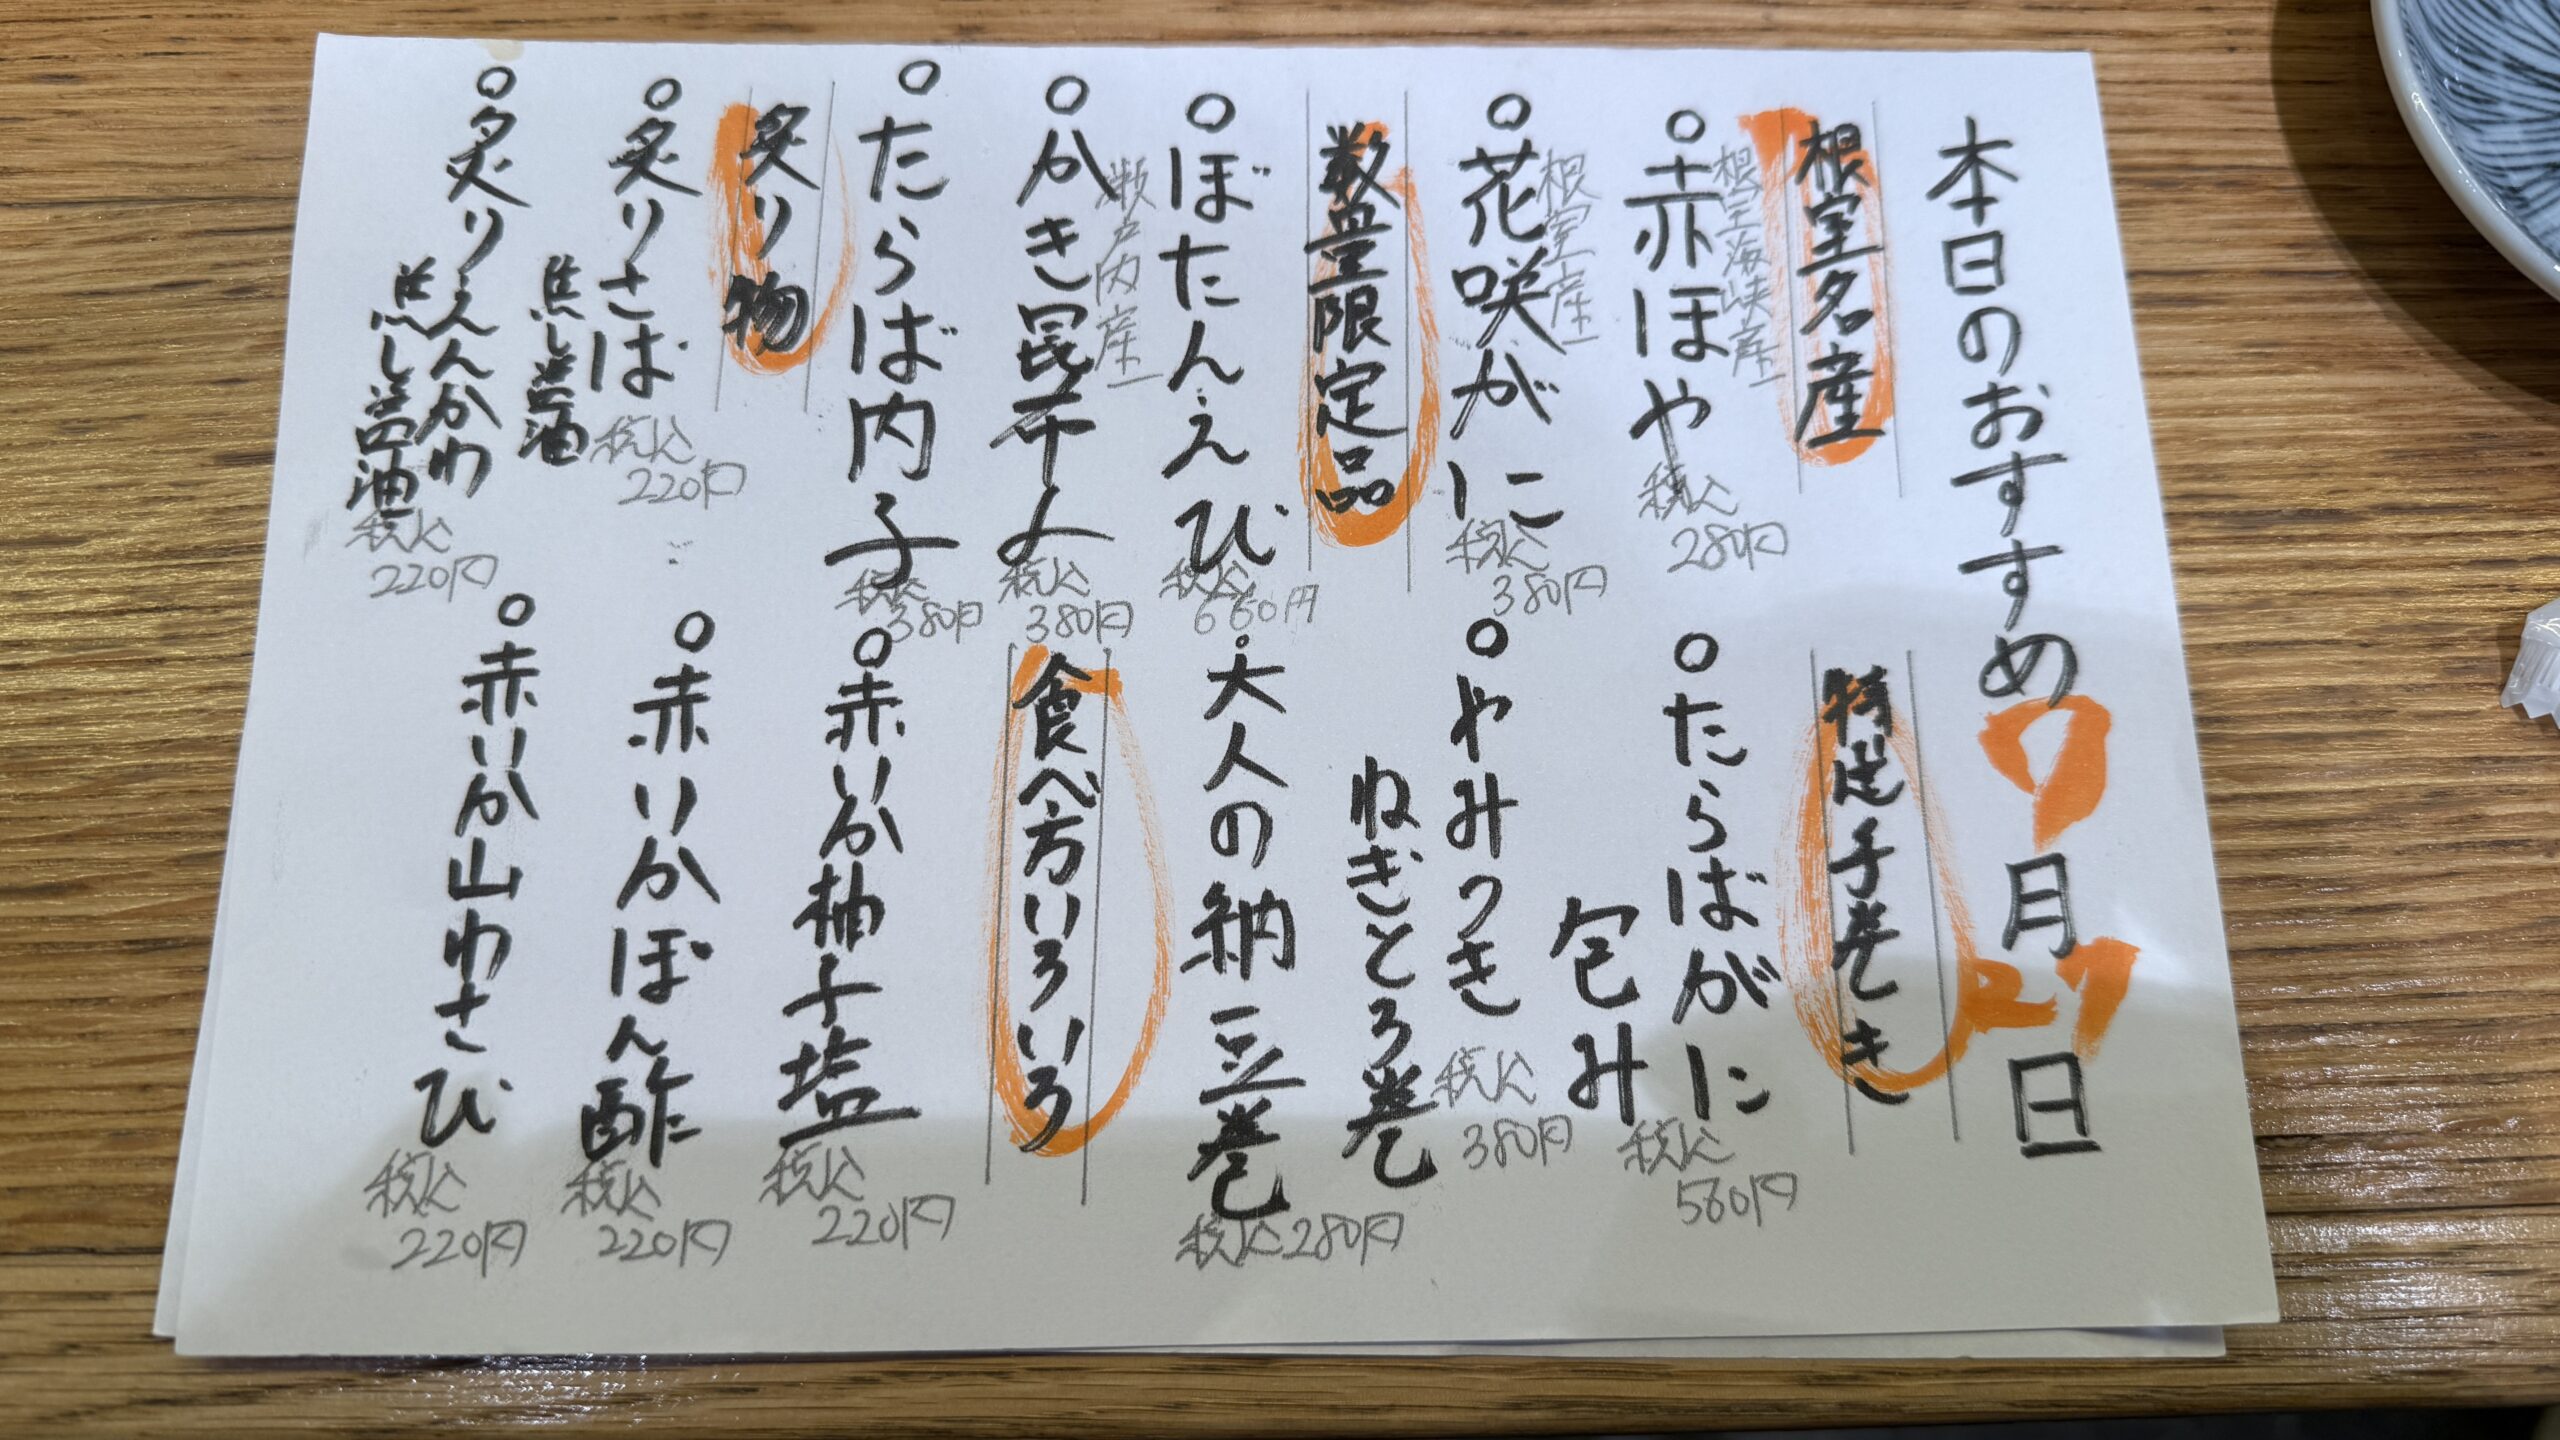 本日のおすすめ 9月27日
根室名産
○赤ほや 根室海峡産 税込280円
○花咲がに 根室産 税込380円
数量限定品
○ぼたんえび 税込660円
○かき昆布〆 瀬戸内産 税込380円
○たらば内子 税込380円
炙り物
○炙りさば
焦し醤油 税込220円
○炙りえんがわ
焦し醤油 税込220円
特選手巻き
○たらばがに
包み 税込580円
○やみつき
ねぎとろ巻 税込380円
○大人の納豆巻 税込280円
食べ方いろいろ
○赤いか柚子塩 税込220円
○赤いかぽん酢 税込220円
○赤いか山わさび 税込220円